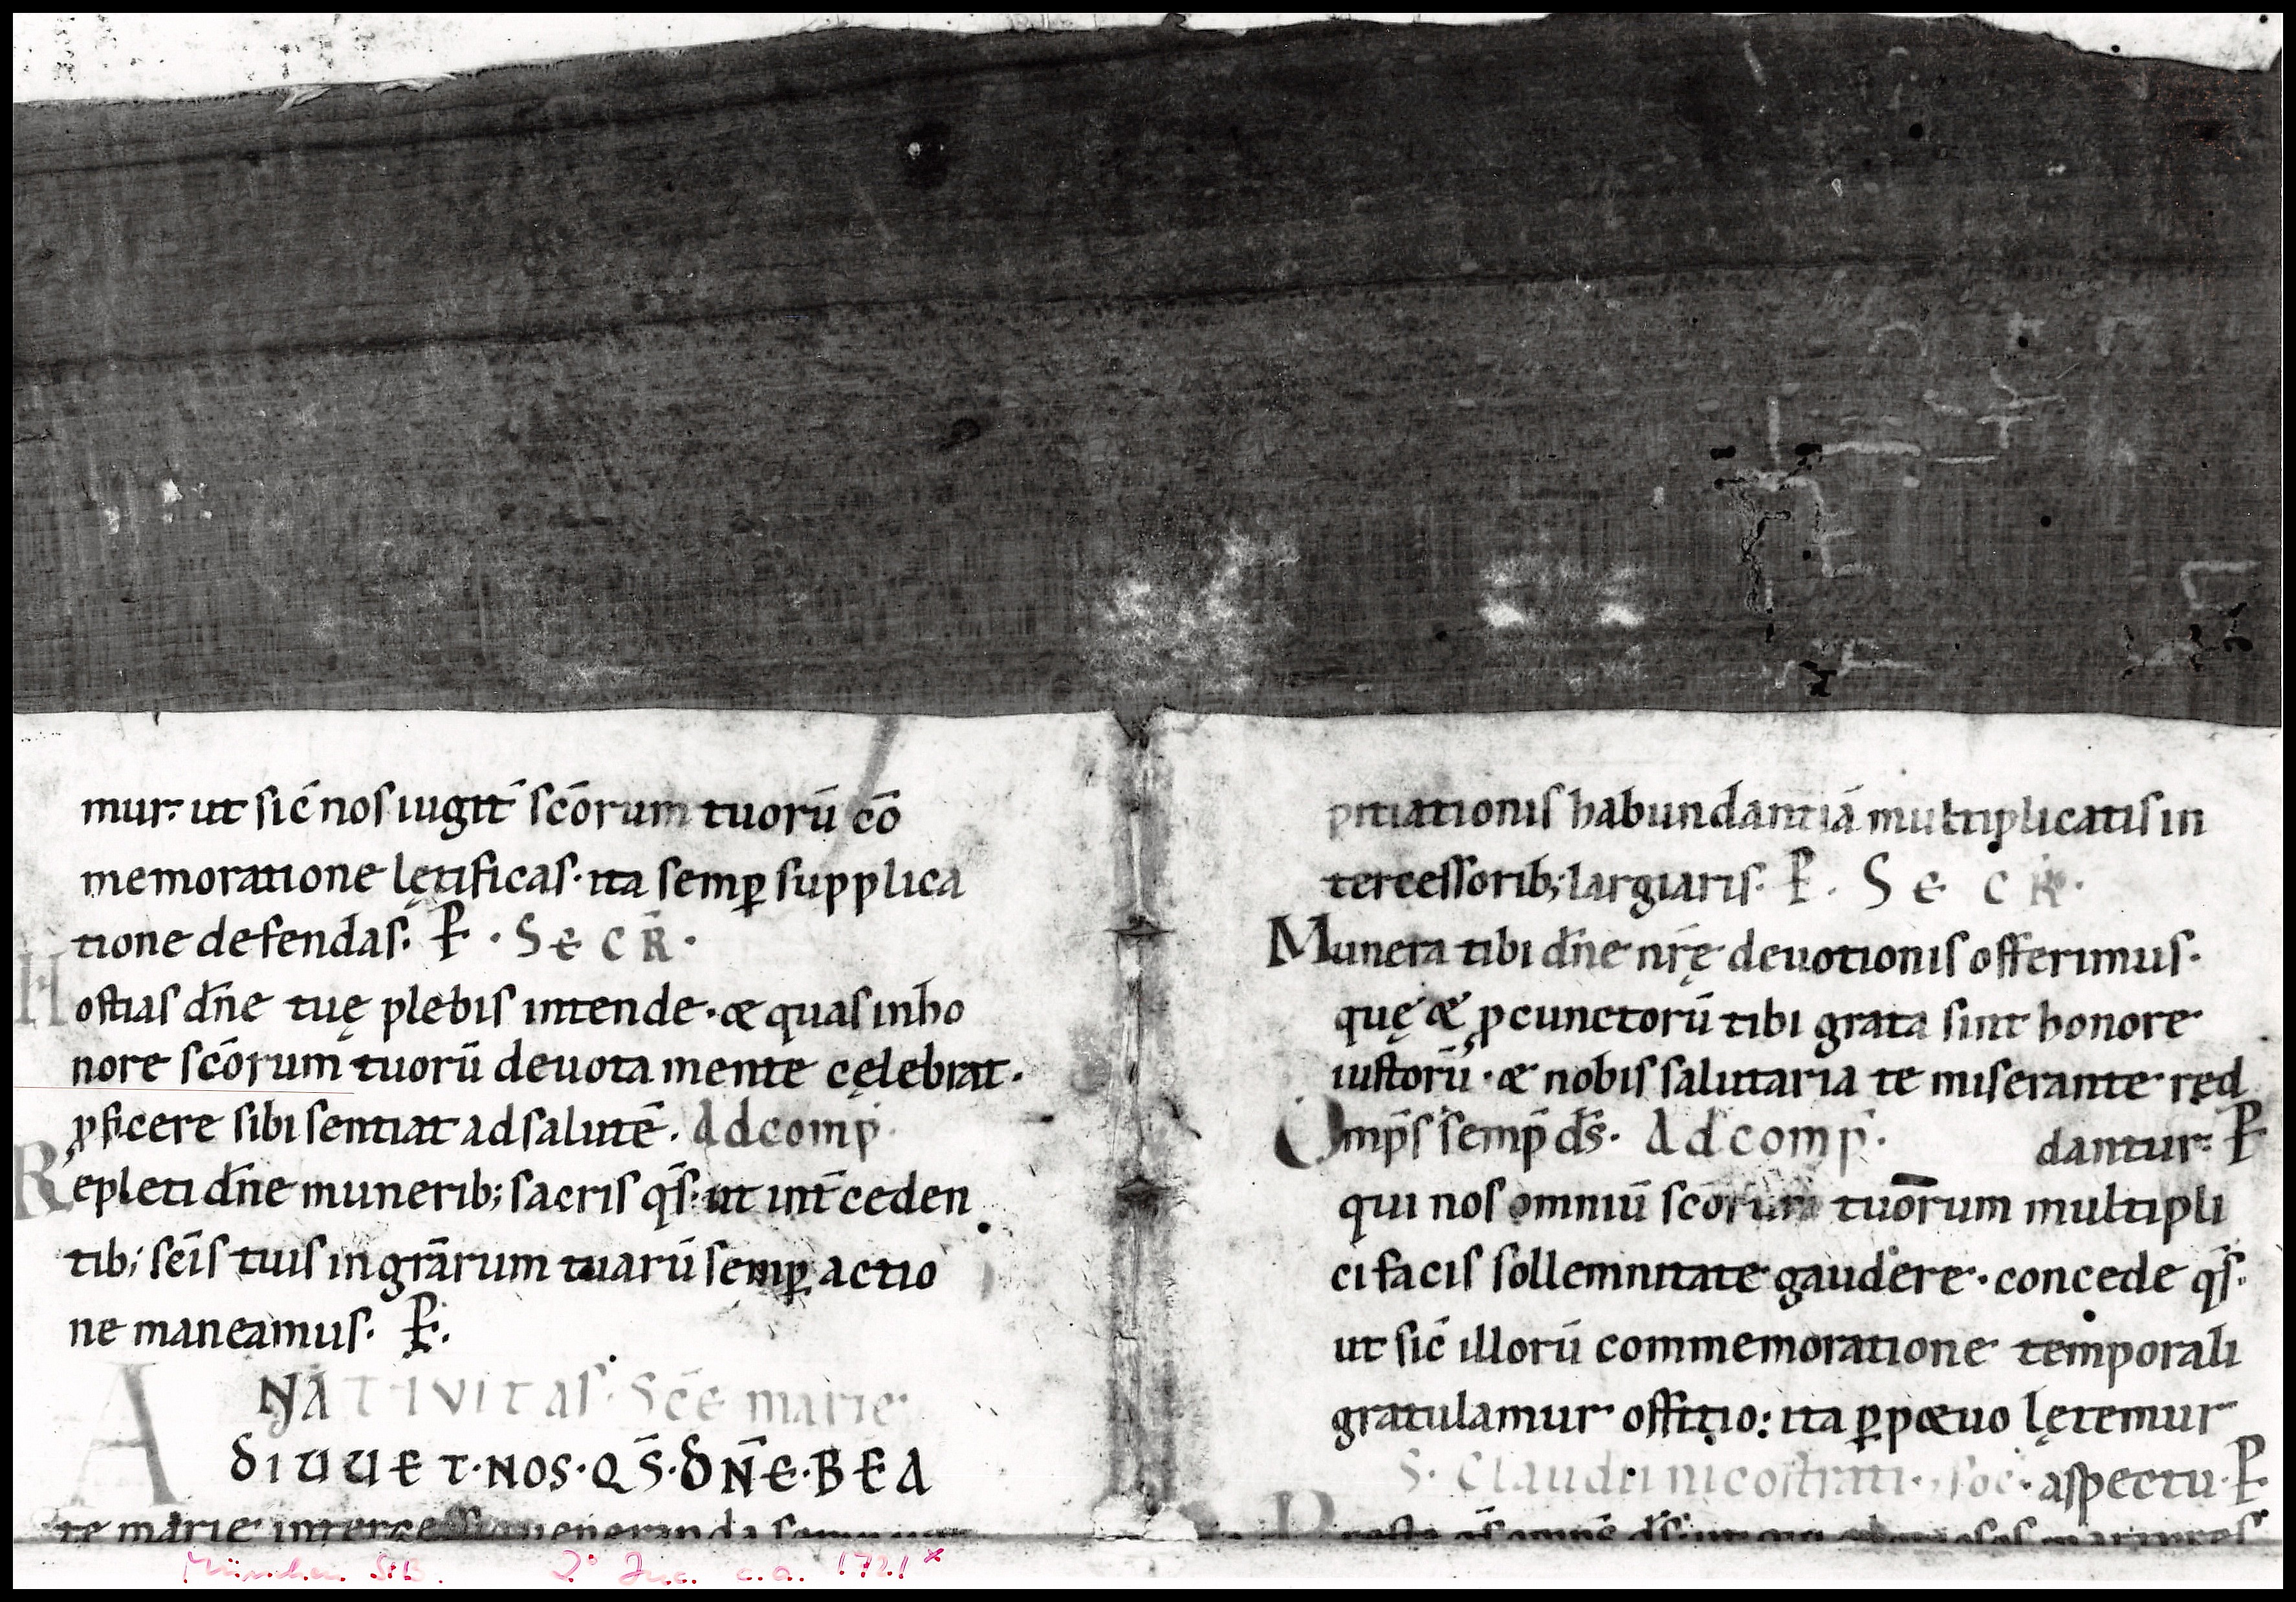 mur: ut sic̄ nos iugit̄ sc̄orum tuorū cō
memoratione lętificas· ita semꝑ supplica
tione defendas: P̄ · S e c R̄ ·
Hostias dn̄e tuę plebis intende· & quas in ho
nore sc̄orum tuorū deuota mente cęlebrat·
ꝓficere sibi sentiat ad salutē· Ad comp̄·
Repleti dn̄e munerib; sacris qs̄· ut int̄ceden
tib; sc̄is tuis in gr̄arum tuarū semꝑ actio
ne maneamus· P̄·
NATIVITAS· Sc̄e marie
ADIUUET·NOS·QS̄·DN̄E·BEA
te marie intercessio ueneranda semper
pitiationis habundantiā multiplicatis in
tercessorib; largiaris· P̄· S e c R̄·
Munera tibi dn̄e nr̄ę deuotionis offerimus·
quę & ꝓ cunctorū tibi grata sint honore
iustorū· & nobis salutaria te miserante red
dantur: P̄
Omp̄s semp̄ ds̄· Ad comp̄·
qui nos omniū sc̄orum tuorum multipli
ci facis sollemnitate gaudere· concede qs̄·
ut sic̄ illorū commemoratione temporali
gratulamur offitio: ita ꝑp&uo lętemur
aspectu· P̄
S· Claudii nicostrati· soc̄·
Presta qs̄ omp̄s ds̄ ut qui gloriosos martyres
München StB. 2° Inc. c.a. 1721ˣ